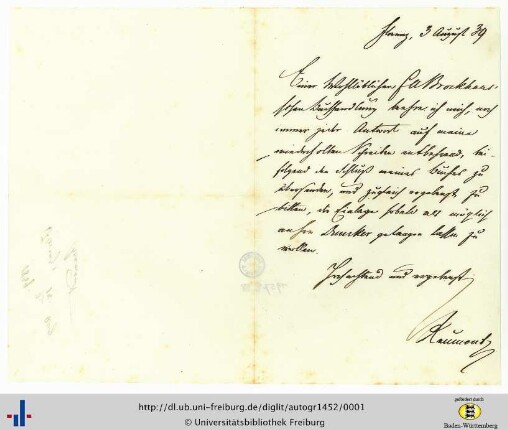 Florenz, 3 August 39
Einer Wohllöblichen F A Brockhaus-
schen Buchhandlung beehre ich mich, noch
immer jeder Antwort auf meine
wiederholten Schreiben entbehrend, bei-
folgend den Schluß meines Buches zu
übersenden, und zugleich ergebenst zu
bitten, die Einlage sobald als möglich
an den Drucker gelangen lassen zu
wollen.
Hochachtend und ergebenst
Reumont
http://dl.ub.uni-freiburg.de/diglit/autogr1452/0001
© Universitätsbibliothek Freiburg
gefördert durch
Baden-Württemberg